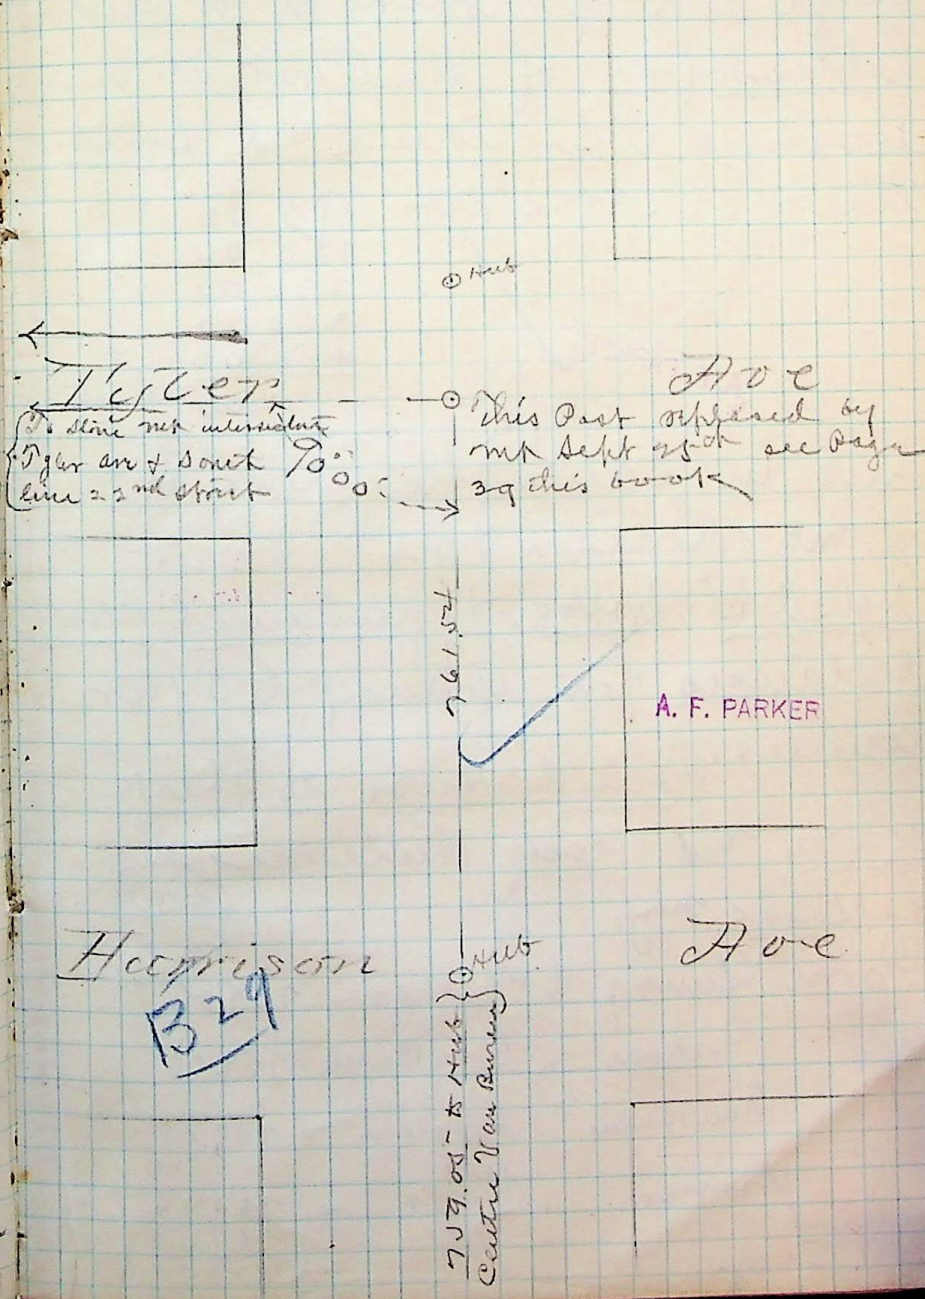 Hub
Tyler Ave
To stone mk intersection
Tyler ave & South
line 22nd street
90°
This Post replaced by
mk Sept 25th see Page
39 this book
761.54
A. F. PARKER
Harrison Ave
Hub
B29
759.05 to Hub
Centre Van Buren